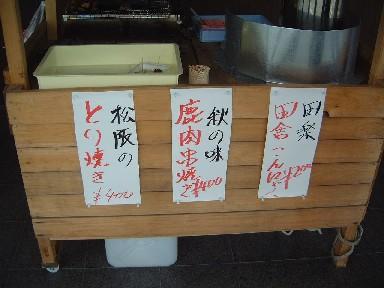 田楽
田舎こんにゃく
¥200
秋の味
鹿肉串焼
¥400
松阪の
とり焼き
¥400